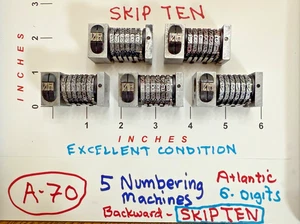 SKIP TEN
3
2
1
0
INCHES
1 2 3 4 5 6
INCHES
EXCELLENT CONDITION
A-70
5 Numbering Machines
Atlantic
6. Digits
Backward - SKIP TEN